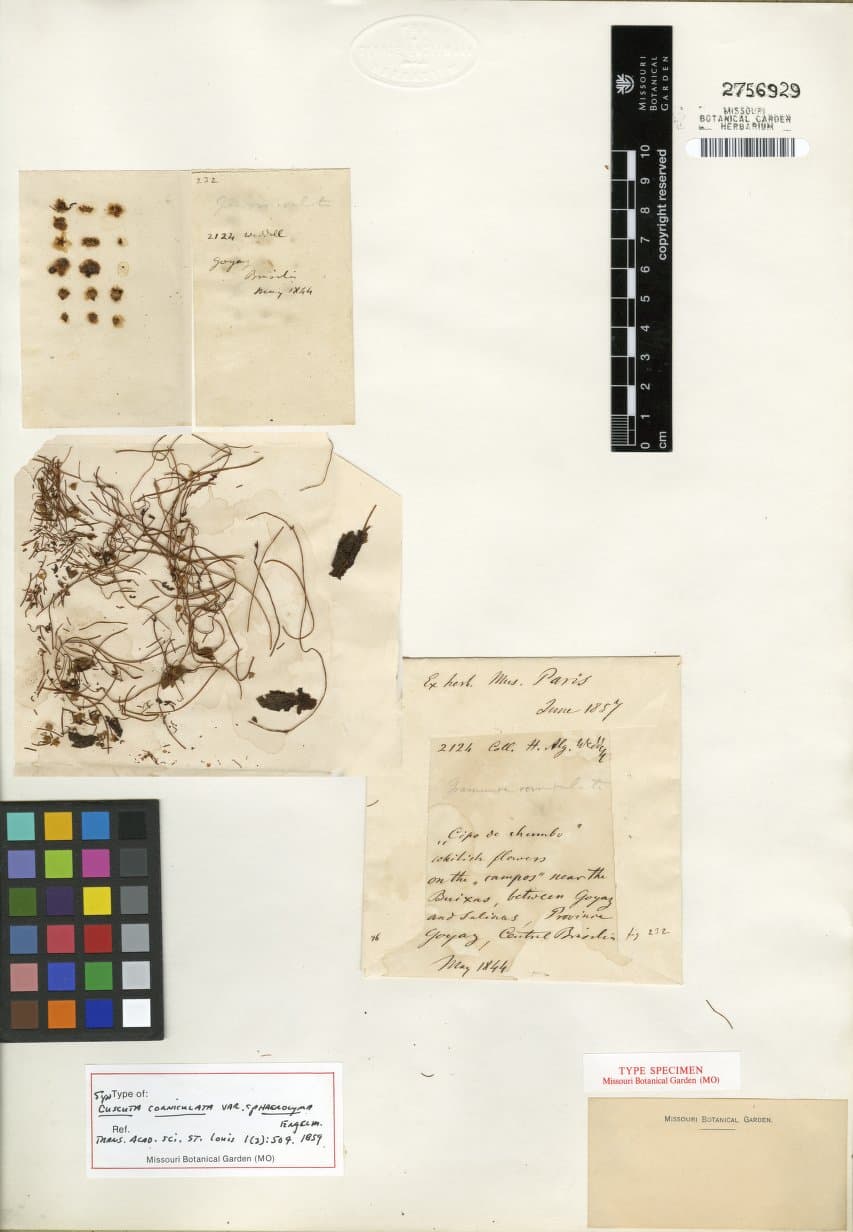 MISSOURI
BOTANICAL
GARDEN
copyright reserved
10
9
8
7
6
5
4
3
2
1
0
cm
2756929
MISSOURI
BOTANICAL GARDEN
HERBARIUM
232
2124 Weddell
Goyaz
Brasilia
May 1844
Ex herb. Mus. Paris
June 1857
2124 Coll. H. Alg. Wedd
"Cipo de chumbo"
whitish flowers
on the "campos" near the
Buixas, between Goyaz
and Salinas, Province
Goyaz, Central Brasilia fg 232
May 1844
Syn Type of:
CUSCUTA CORNICULATA VAR. SPHAEROCYMA
Engelm.
Ref.
TRANS. ACAD. SCI. ST. Louis 1(3):509. 1859
Missouri Botanical Garden (MO)
TYPE SPECIMEN
Missouri Botanical Garden (MO)
MISSOURI BOTANICAL GARDEN.